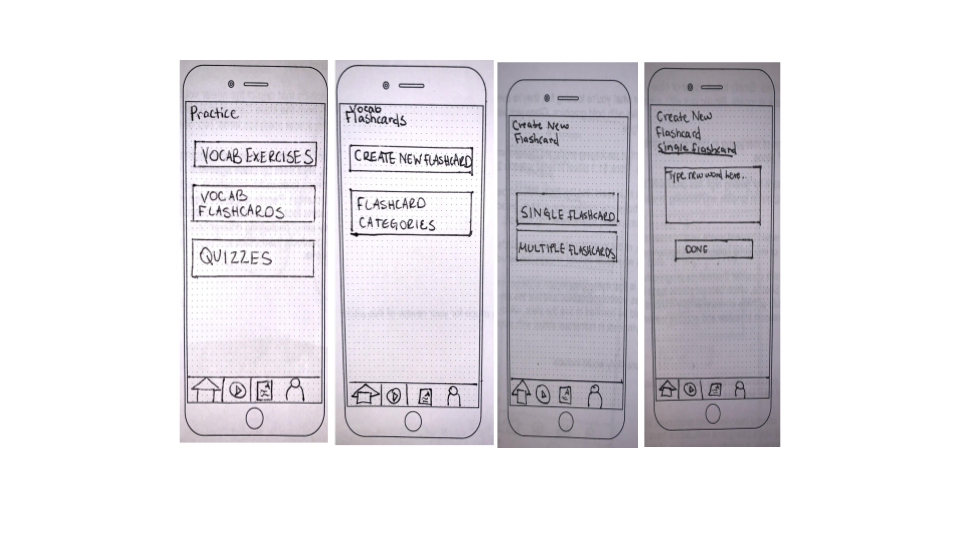 Practice
VOCAB EXERCISES
VOCAB
FLASHCARDS
QUIZZES
Vocab
flashcards
CREATE NEW FLASHCARD
FLASHCARD
CATEGORIES
Create New
Flashcard
SINGLE FLASHCARD
MULTIPLE FLASHCARDS
Create New
Flashcard
Single flashcard
Type new word here.
DONE